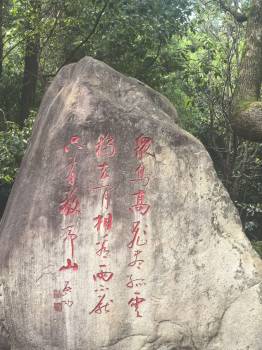 眾鳥高飛盡孤雲
獨去閒相看兩不厭
只有敬亭山